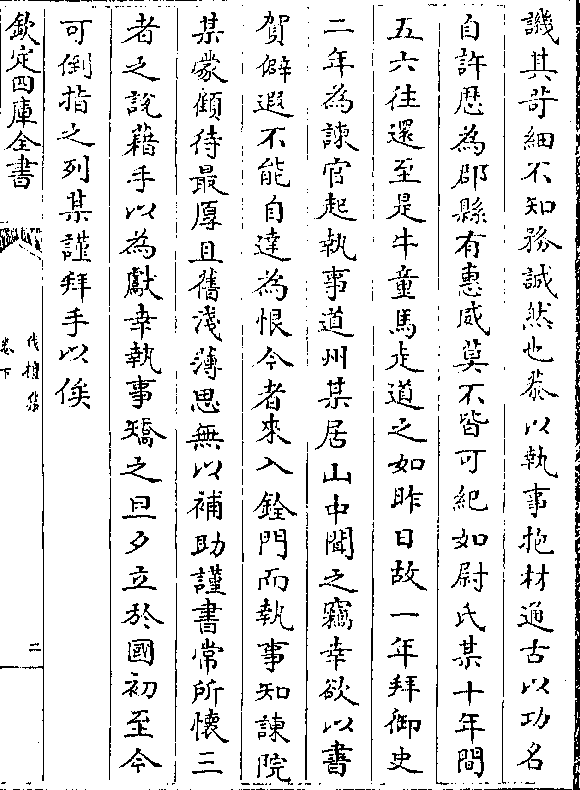 譏其苛細不知務誠然也恭以執事抱材通古以功名
自許歴為郡縣有惠威莫不皆可紀如尉氏某十年間
五六往還至是牛童馬走道之如昨日故一年拜御史
二年為諫官起執事道州某居山中聞之竊幸欲以書
賀僻遐不能自達為恨今者來入銓門而執事知諫院
某蒙顧待最厚且舊淺薄思無以補助謹書常所懷三
者之說藉手以為獻幸執事矯之旦夕立於國初至今
可倒指之列某謹拜手以俟
欽定四庫全書
伐檀集
卷下
二